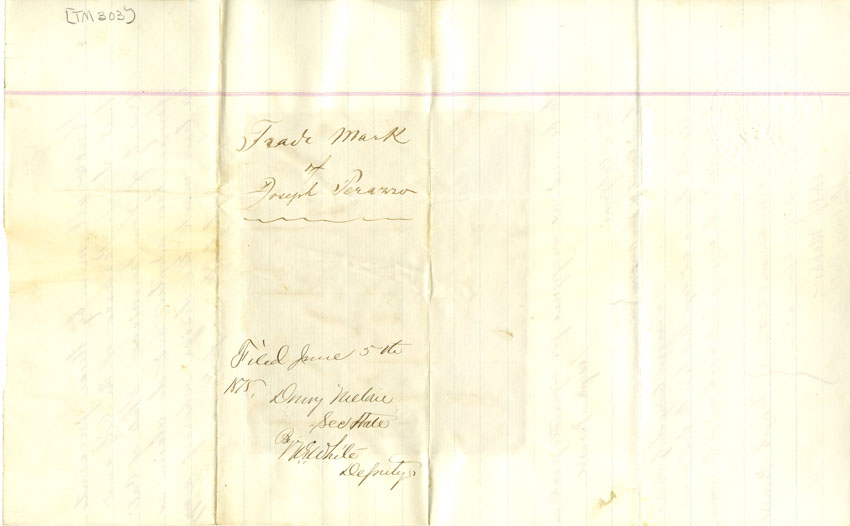 [TM 303]
Trade Mark
of
Joseph Perazzo
Filed June 5th
1875,
Drury Melone
Sec State
By
White
Deputy